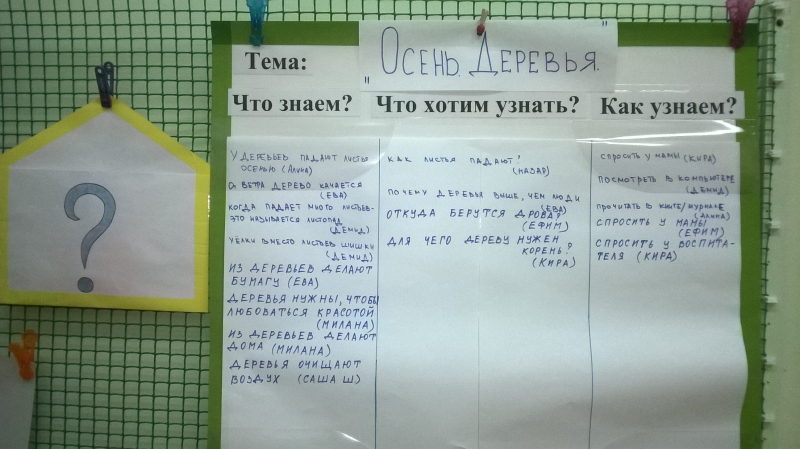 Тема:
"Осень. Деревья."
Что знаем?
Что хотим узнать?
Как узнаем?
У деревьев падают листья
осенью (Алина)
От ветра дерево качается
(Ева)
Когда падает много листьев-
это называется листопад
(Демид)
У ёлки вместо листьев шишки
(Демид)
Из деревьев делают
бумагу (Ева)
Деревья нужны, чтобы
любоваться красотой
(Милана)
Из деревьев делают
дома (Милана)
Деревья очищают
воздух (Саша Ш)
Как листья падают?
(Назар)
Почему деревья выше, чем люди
(Ева)
Откуда берутся дрова?
(Ефим)
Для чего дереву нужен
корень?
(Кира)
Спросить у мамы (Кира)
Посмотреть в компьютере
(Демид)
Прочитать в книге/журнале
(Алина)
Спросить у мамы
(Ефим)
Спросить у воспита-
теля (Кира)
?